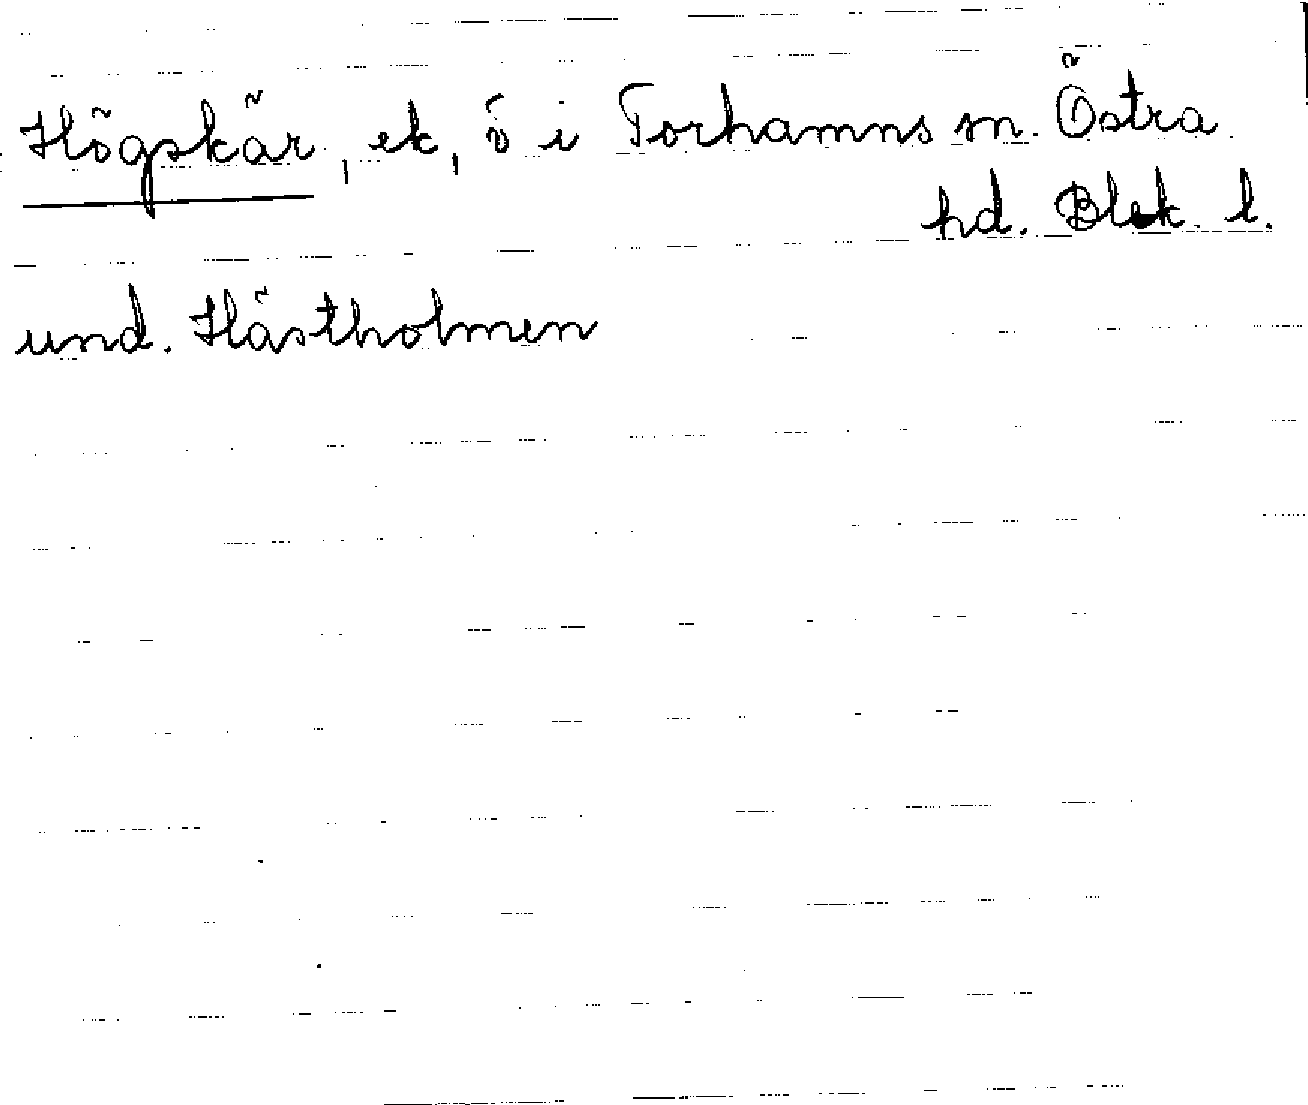 Högskär, ek, ö i Torhamns sn. Östra
hd. Blek. l.
und. Hästholmen